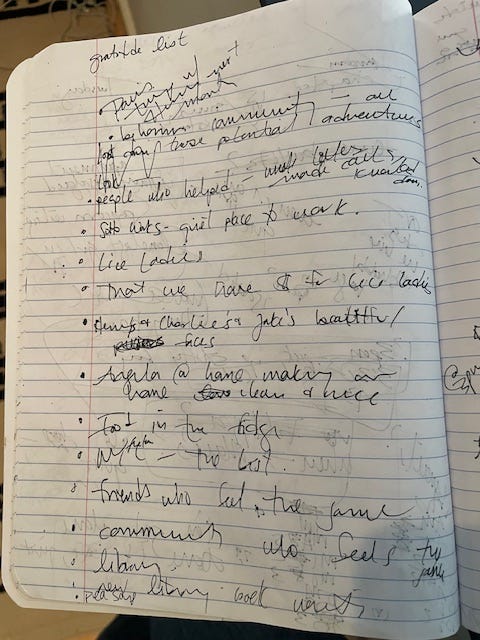 gratitude list
Paris
next
month
community - all
those potential adventures
people who helped - wrote letters
made calls
knocked
doors.
Soho Works - quiet place to work.
Lice Ladies
That we have $ for lice ladies
& Charlie's & Jake's beautiful
faces
Angela @ home making our
home clean & nice
Food in the fridge
- the best.
friends who feel the same
community who feels the
same
library
library book